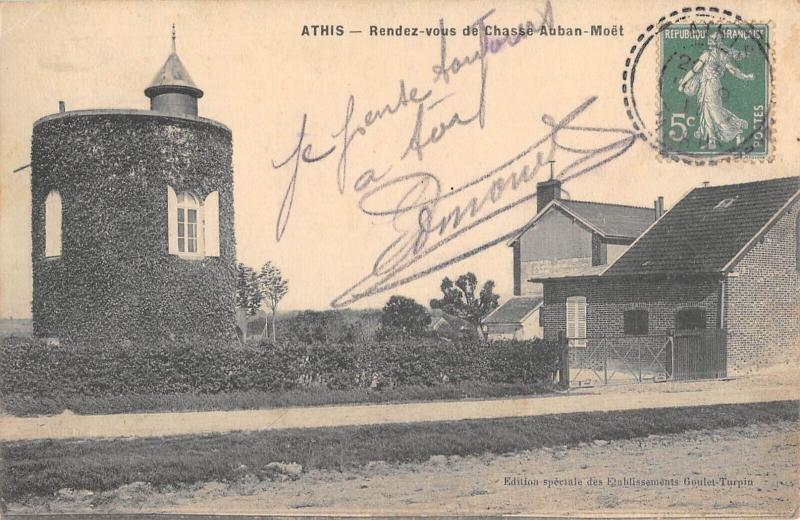 ATHIS — Rendez-vous de Chasse Auban-Moët
REPUBLIQUE FRANÇAISE
5c
POSTES
je pense toujours
a toi
Edmond
Edition spéciale des Etablissements Goulet-Turpin